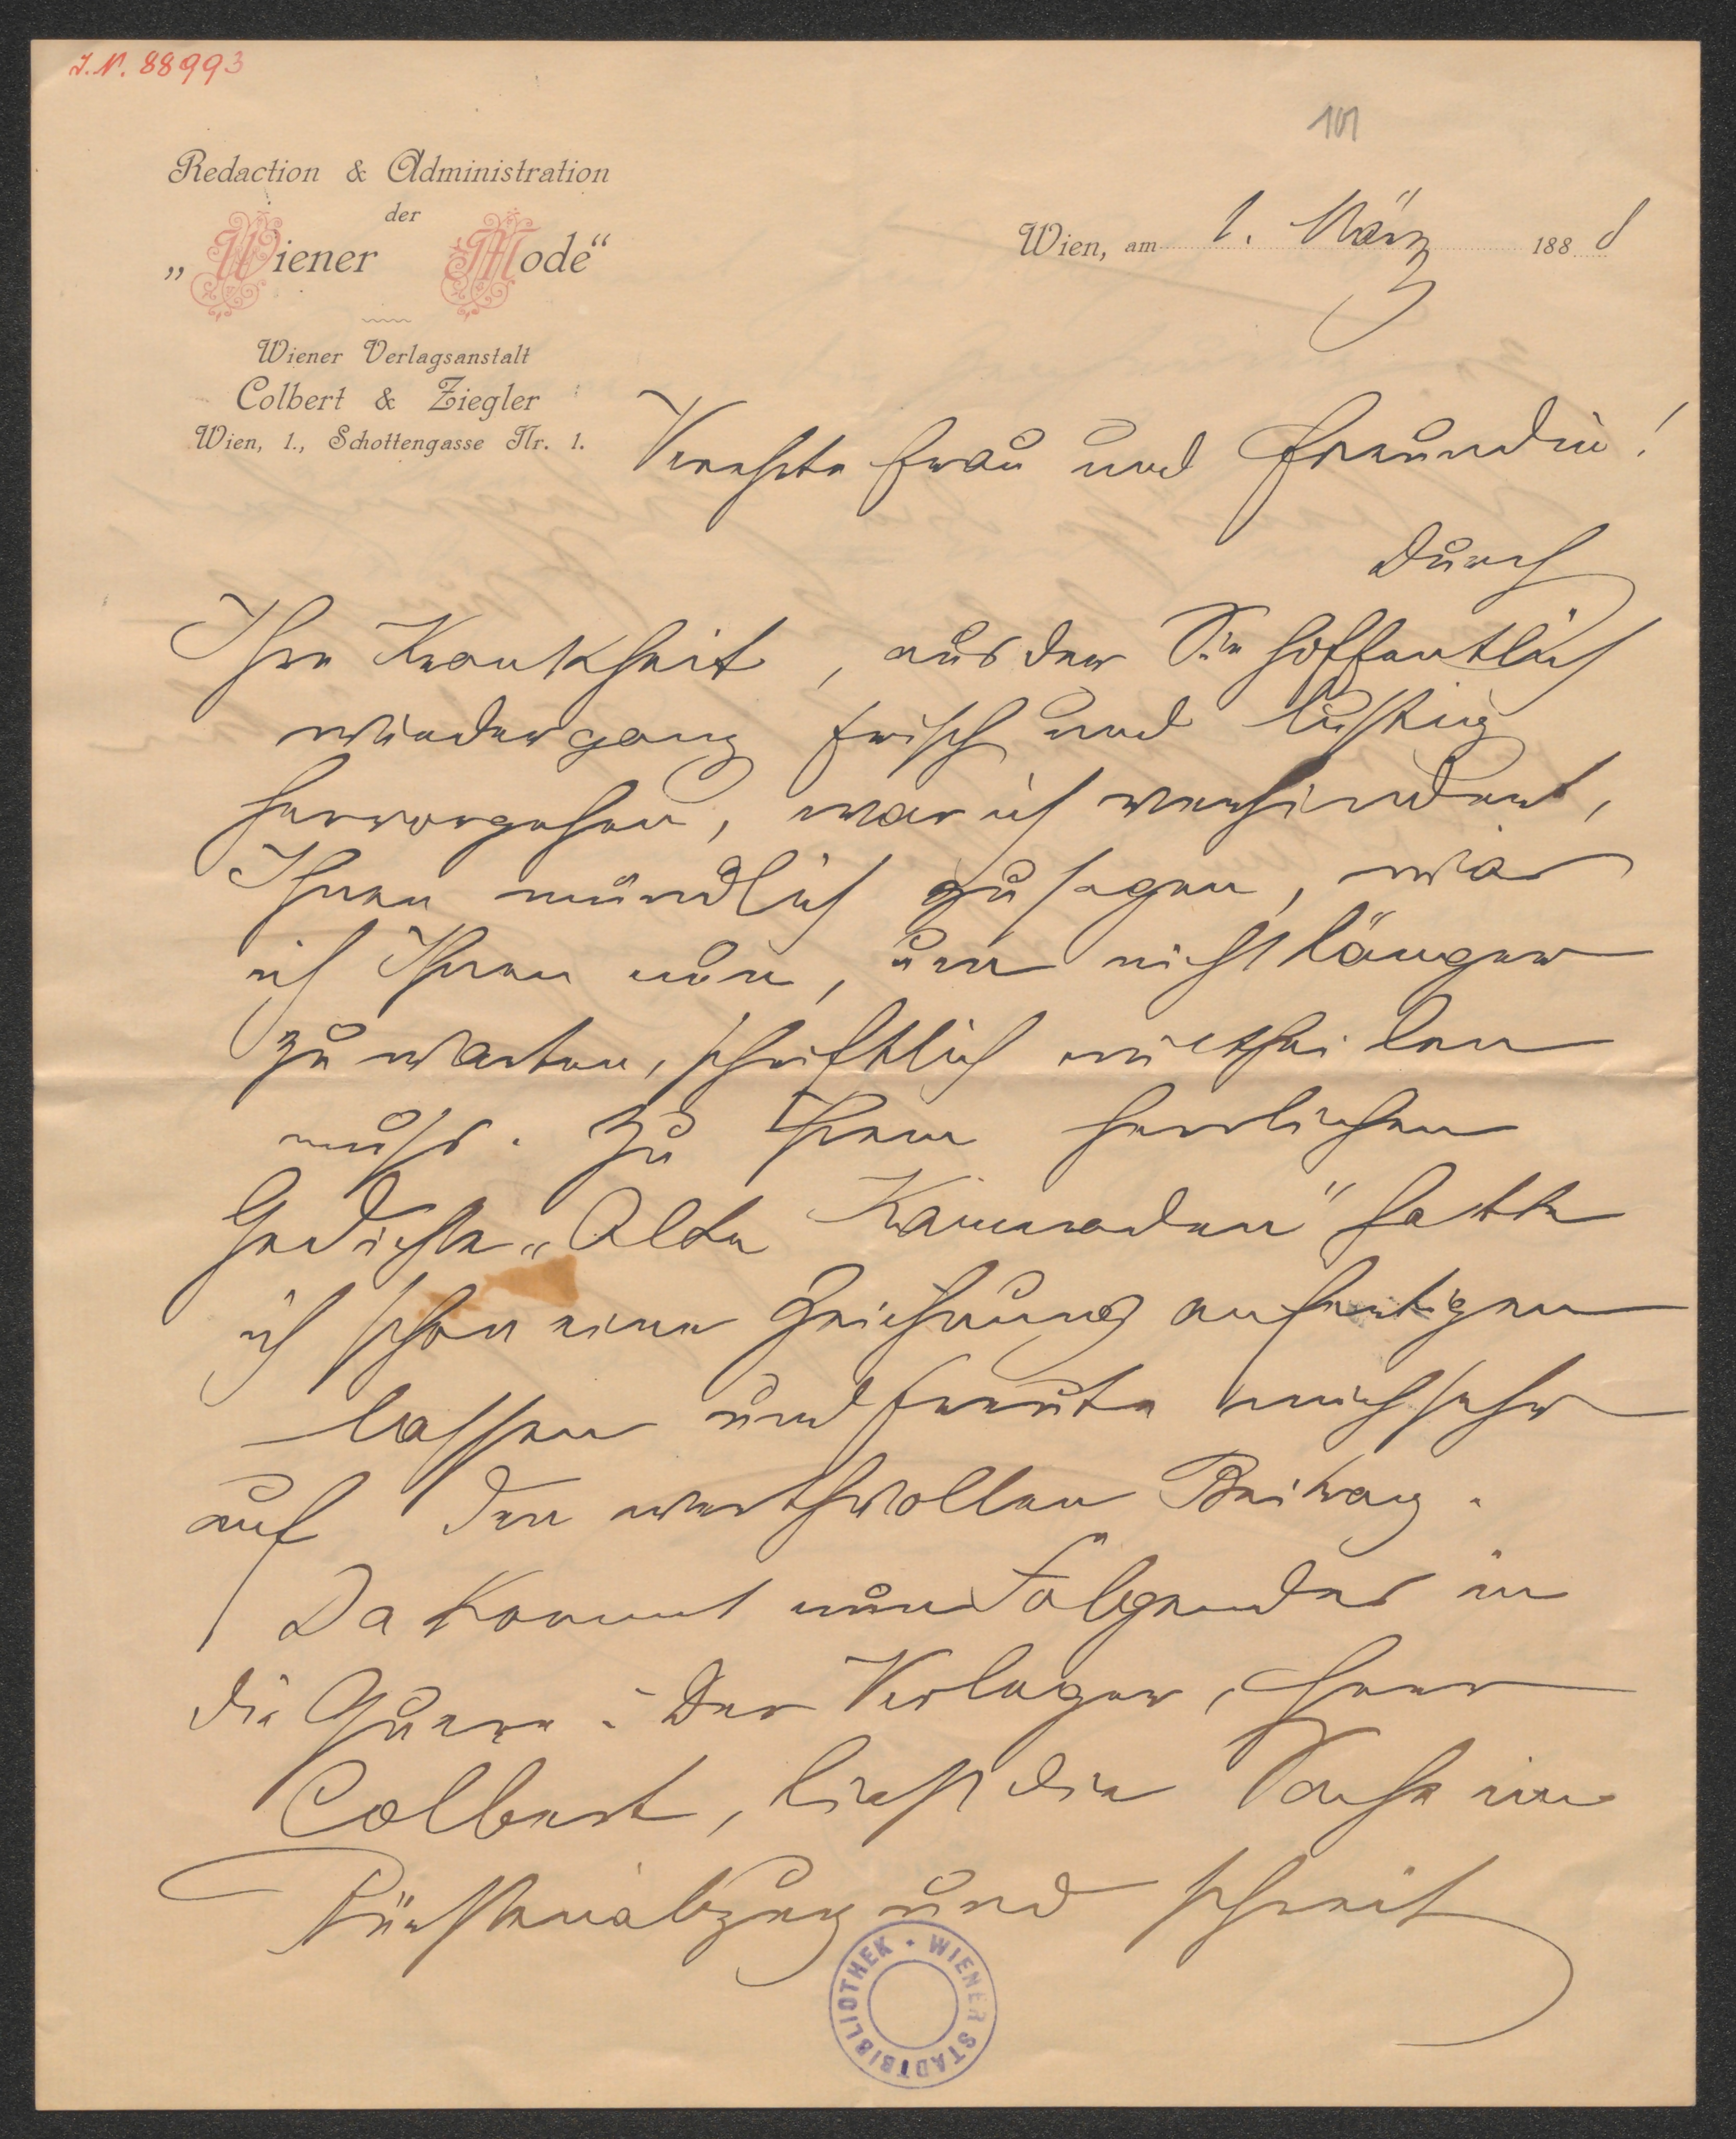 J. N. 88993
101
Redaction & Administration
der
„Wiener Mode“
Wiener Verlagsanstalt
Colbert & Ziegler
Wien, 1., Schottengasse Nr. 1.
Wien, am 1. März 1888
Verehrte Frau und Freundin!
Durch
Ihre Krankheit, aus der Sie hoffentlich
wieder ganz frisch und lustig
hervorgehen, war ich verhindert,
Ihnen mündlich zu sagen, was
ich Ihnen nun, um nicht länger
zu warten, schriftlich mittheilen
muß. Zu Ihrem herrlichen
Gedichte „Alte Kameraden“ hatte
ich schon eine Zeichnung anfertigen
lassen und freute mich sehr
auf den werthvollen Beitrag.
Da kommt nun Folgendes in
die Quere: Der Verleger, Herr
Colbert, liest die Sache im
Bürstenabzug und schreit
WIENER STADTBIBLIOTHEK